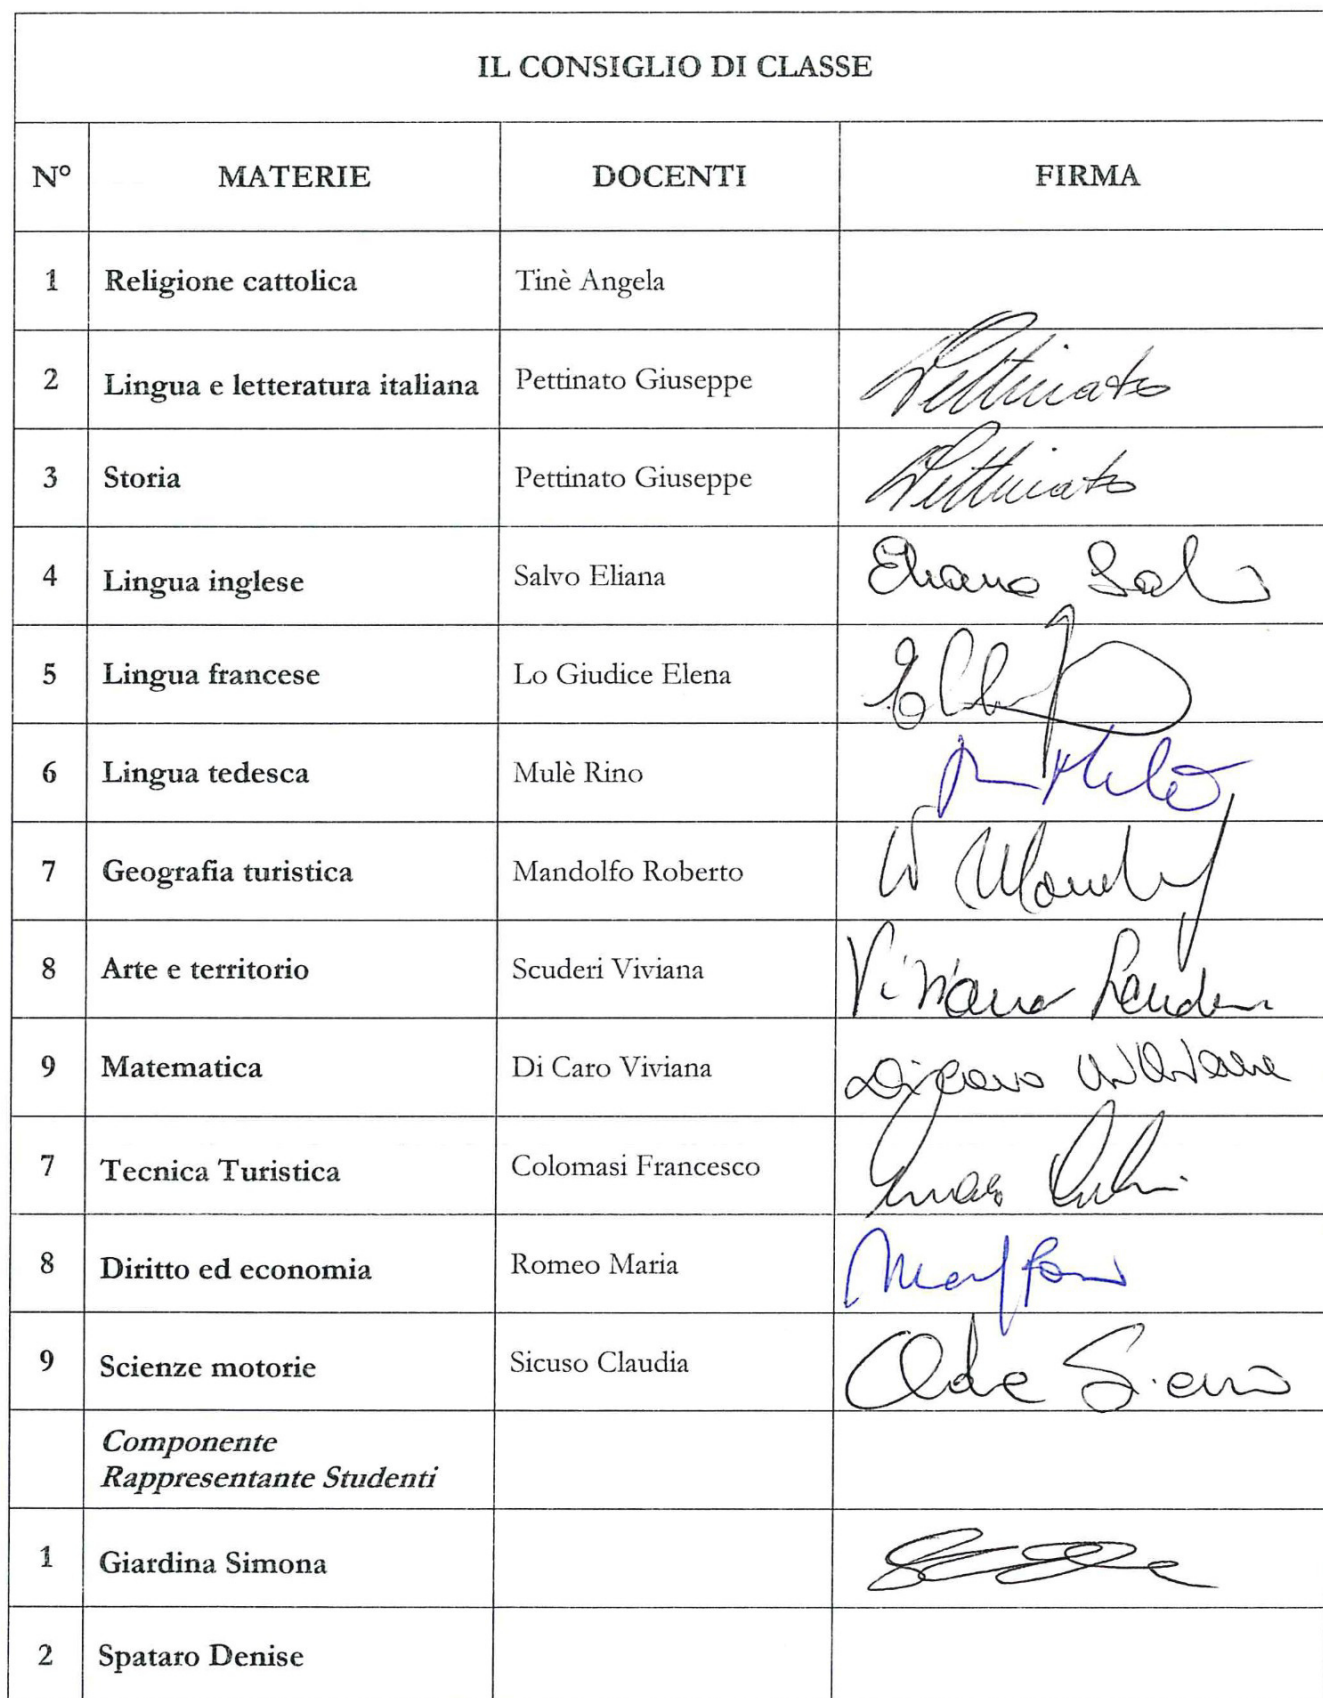 IL CONSIGLIO DI CLASSE
N° MATERIE DOCENTI FIRMA
1 Religione cattolica Tinè Angela
2 Lingua e letteratura italiana Pettinato Giuseppe Pettinato
3 Storia Pettinato Giuseppe Pettinato
4 Lingua inglese Salvo Eliana Eliana
5 Lingua francese Lo Giudice Elena
6 Lingua tedesca Mulè Rino
7 Geografia turistica Mandolfo Roberto
8 Arte e territorio Scuderi Viviana Viviana Scuderi
9 Matematica Di Caro Viviana Di Caro Viviana
7 Tecnica Turistica Colomasi Francesco
8 Diritto ed economia Romeo Maria
9 Scienze motorie Sicuso Claudia
Componente
Rappresentante Studenti
1 Giardina Simona
2 Spataro Denise